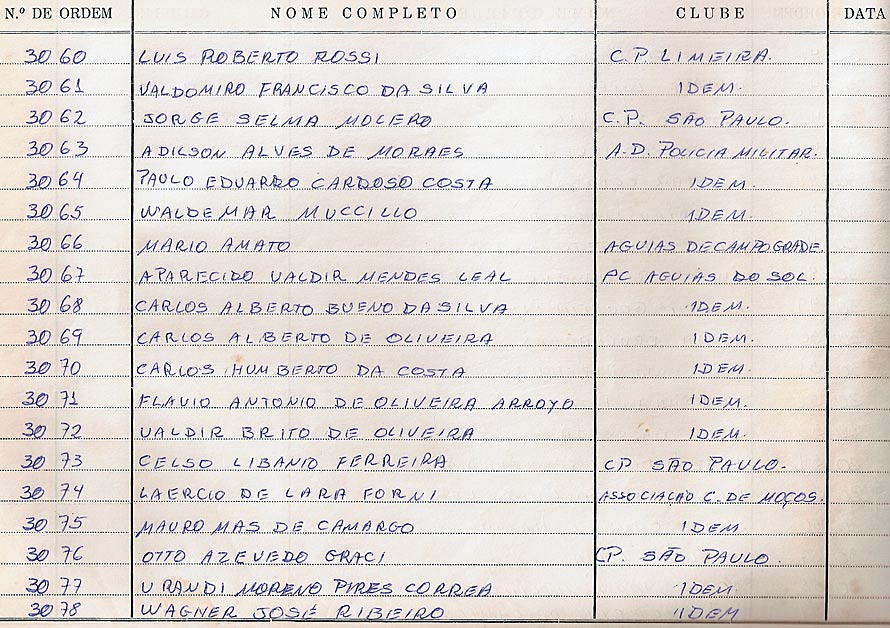 N.º DE ORDEM NOME COMPLETO CLUBE DATA
3060 LUIS ROBERTO ROSSI C.P. LIMEIRA.
3061 VALDOMIRO FRANCISCO DA SILVA IDEM.
3062 JORGE SELMA MOLERO C.P. SÃO PAULO.
3063 ADILSON ALVES DE MORAES A.D. POLICIA MILITAR.
3064 PAULO EDUARRO CARDOSO COSTA IDEM.
3065 WALDEMAR MUCCILLO IDEM.
3066 MARIO AMATO AGUIAS DECAMPOGRADE.
3067 APARECIDO VALDIR MENDES LEAL PC AGUIAS DO SOL.
3068 CARLOS ALBERTO BUENO DA SILVA IDEM.
3069 CARLOS ALBERTO DE OLIVEIRA IDEM.
3070 CARLOS HUMBERTO DA COSTA IDEM.
3071 FLAVIO ANTONIO DE OLIVEIRA ARROYO IDEM.
3072 VALDIR BRITO DE OLIVEIRA IDEM.
3073 CELSO LIBANIO FERREIRA CP SÃO PAULO.
3074 LAERCIO DE LARA FORNI ASSOCIAÇÃO C. DE MOÇOS.
3075 MAURO MAS DE CAMARGO IDEM
3076 OTTO AZEVEDO GRACI CP. SÃO PAULO.
3077 URANDI MORENO PIRES CORREA IDEM
3078 WAGNER JOSÉ RIBEIRO IDEM